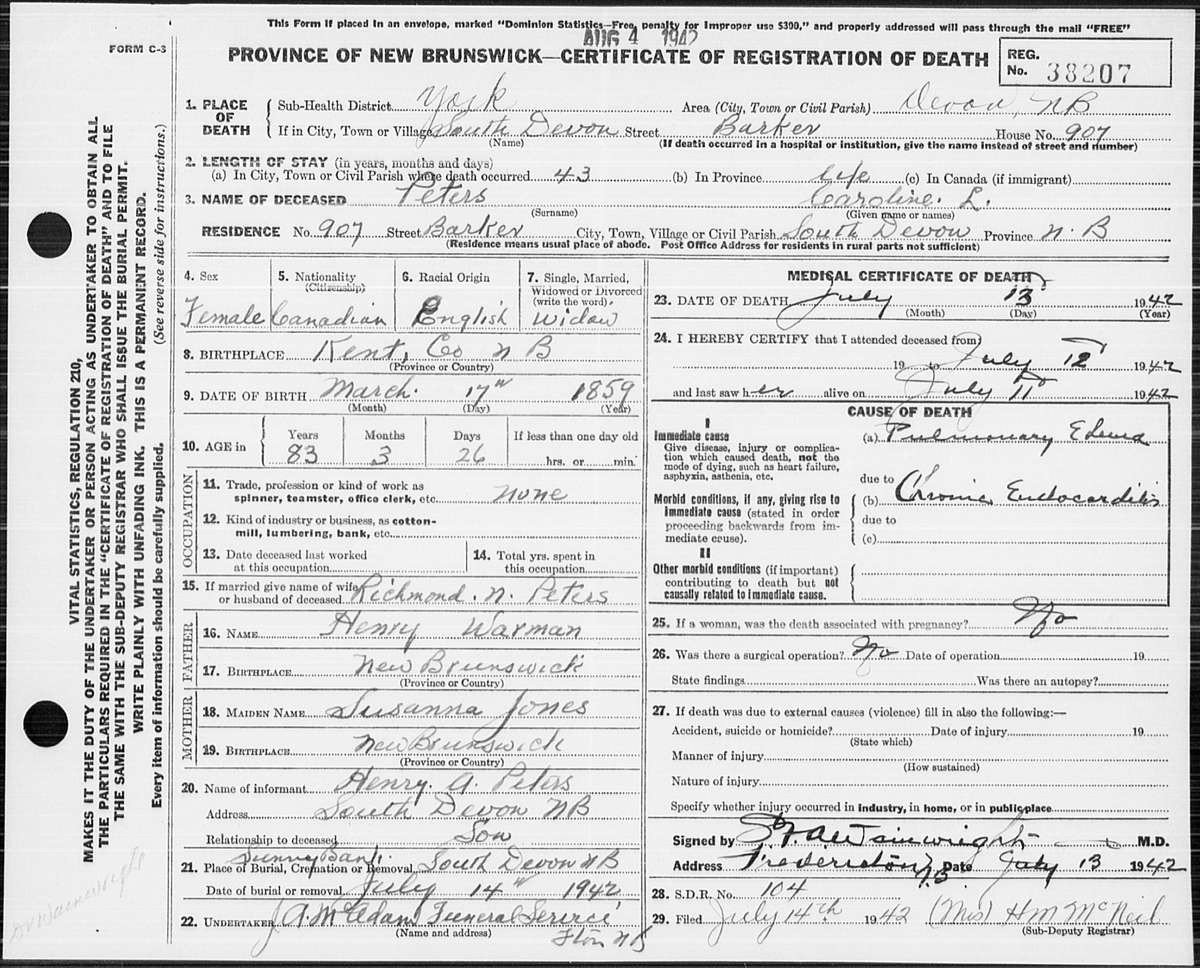 This Form if placed in an envelope, marked "Dominion Statistics—Free, penalty for improper use $300," and properly addressed will pass through the mail "FREE"
AUG 4 1942
FORM C-3
PROVINCE OF NEW BRUNSWICK—CERTIFICATE OF REGISTRATION OF DEATH
REG. No. 38207
VITAL STATISTICS, REGULATION 210,
MAKES IT THE DUTY OF THE UNDERTAKER OR PERSON ACTING AS UNDERTAKER TO OBTAIN ALL
THE PARTICULARS REQUIRED IN THE "CERTIFICATE OF REGISTRATION OF DEATH" AND TO FILE
THE SAME WITH THE SUB-DEPUTY REGISTRAR WHO SHALL ISSUE THE BURIAL PERMIT.
WRITE PLAINLY WITH UNFADING INK. THIS IS A PERMANENT RECORD.
Every item of information should be carefully supplied. (See reverse side for instructions.)
1. PLACE OF DEATH
Sub-Health District York Area (City, Town or Civil Parish) Devon, NB
If in City, Town or Village South Devon Street Barker House No. 907
(Name) (If death occurred in a hospital or institution, give the name instead of street and number)
2. LENGTH OF STAY (in years, months and days)
(a) In City, Town or Civil Parish where death occurred 43 (b) In Province Life (c) In Canada (if immigrant)
3. NAME OF DECEASED Peters Caroline. L.
(Surname) (Given name or names)
RESIDENCE No. 907 Street Barker City, Town, Village or Civil Parish South Devon Province N. B
(Residence means usual place of abode. Post Office Address for residents in rural parts not sufficient)
4. Sex
Female
5. Nationality
(Citizenship)
Canadian
6. Racial Origin
English
7. Single, Married,
Widowed or Divorced
(write the word)
Widow
8. BIRTHPLACE Kent, Co N B
(Province or Country)
9. DATE OF BIRTH March. 17th 1859
(Month) (Day) (Year)
10. AGE in
Years Months Days If less than one day old
83 3 26 hrs. or min.
OCCUPATION
11. Trade, profession or kind of work as
spinner, teamster, office clerk, etc. none
12. Kind of industry or business, as cotton-
mill, lumbering, bank, etc.
13. Date deceased last worked
at this occupation
14. Total yrs. spent in
this occupation
15. If married give name of wife
or husband of deceased Richmond. N. Peters
FATHER
16. NAME Henry Warman
17. BIRTHPLACE New Brunswick
(Province or Country)
MOTHER
18. MAIDEN NAME Susanna Jones
19. BIRTHPLACE New Brunswick
(Province or Country)
20. Name of informant Henry. A. Peters
Address South Devon NB
Relationship to deceased Son
Sunny Bank
21. Place of Burial, Cremation or Removal South Devon NB
Date of burial or removal July 14th 1942
22. UNDERTAKER J. A. McAdam Funeral Service
(Name and address) Fton NB
MEDICAL CERTIFICATE OF DEATH
23. DATE OF DEATH July 13 1942
(Month) (Day) (Year)
24. I HEREBY CERTIFY that I attended deceased from
19 to July 12 1942
and last saw her alive on July 11 1942
CAUSE OF DEATH
I
Immediate cause
Give disease, injury or complica-
tion which caused death, not the
mode of dying, such as heart failure,
asphyxia, asthenia, etc.
(a) Pulmonary Edema
due to
Morbid conditions, if any, giving rise to
immediate cause (stated in order
proceeding backwards from im-
mediate cause).
(b) Chronic Endocarditis
due to
(c)
II
Other morbid conditions (if important)
contributing to death but not
causally related to immediate cause.
25. If a woman, was the death associated with pregnancy? No
26. Was there a surgical operation? No Date of operation 19
State findings Was there an autopsy?
27. If death was due to external causes (violence) fill in also the following:—
Accident, suicide or homicide? Date of injury 19
(State which)
Manner of injury
(How sustained)
Nature of injury
Specify whether injury occurred in industry, in home, or in public place
Signed by Wainwright M.D.
Address Fredericton N.B. Date July 13 1942
28. S.D.R. No. 104
29. Filed July 14th 1942 (Miss) H M McNeil
(Sub-Deputy Registrar)
Dr Wainwright